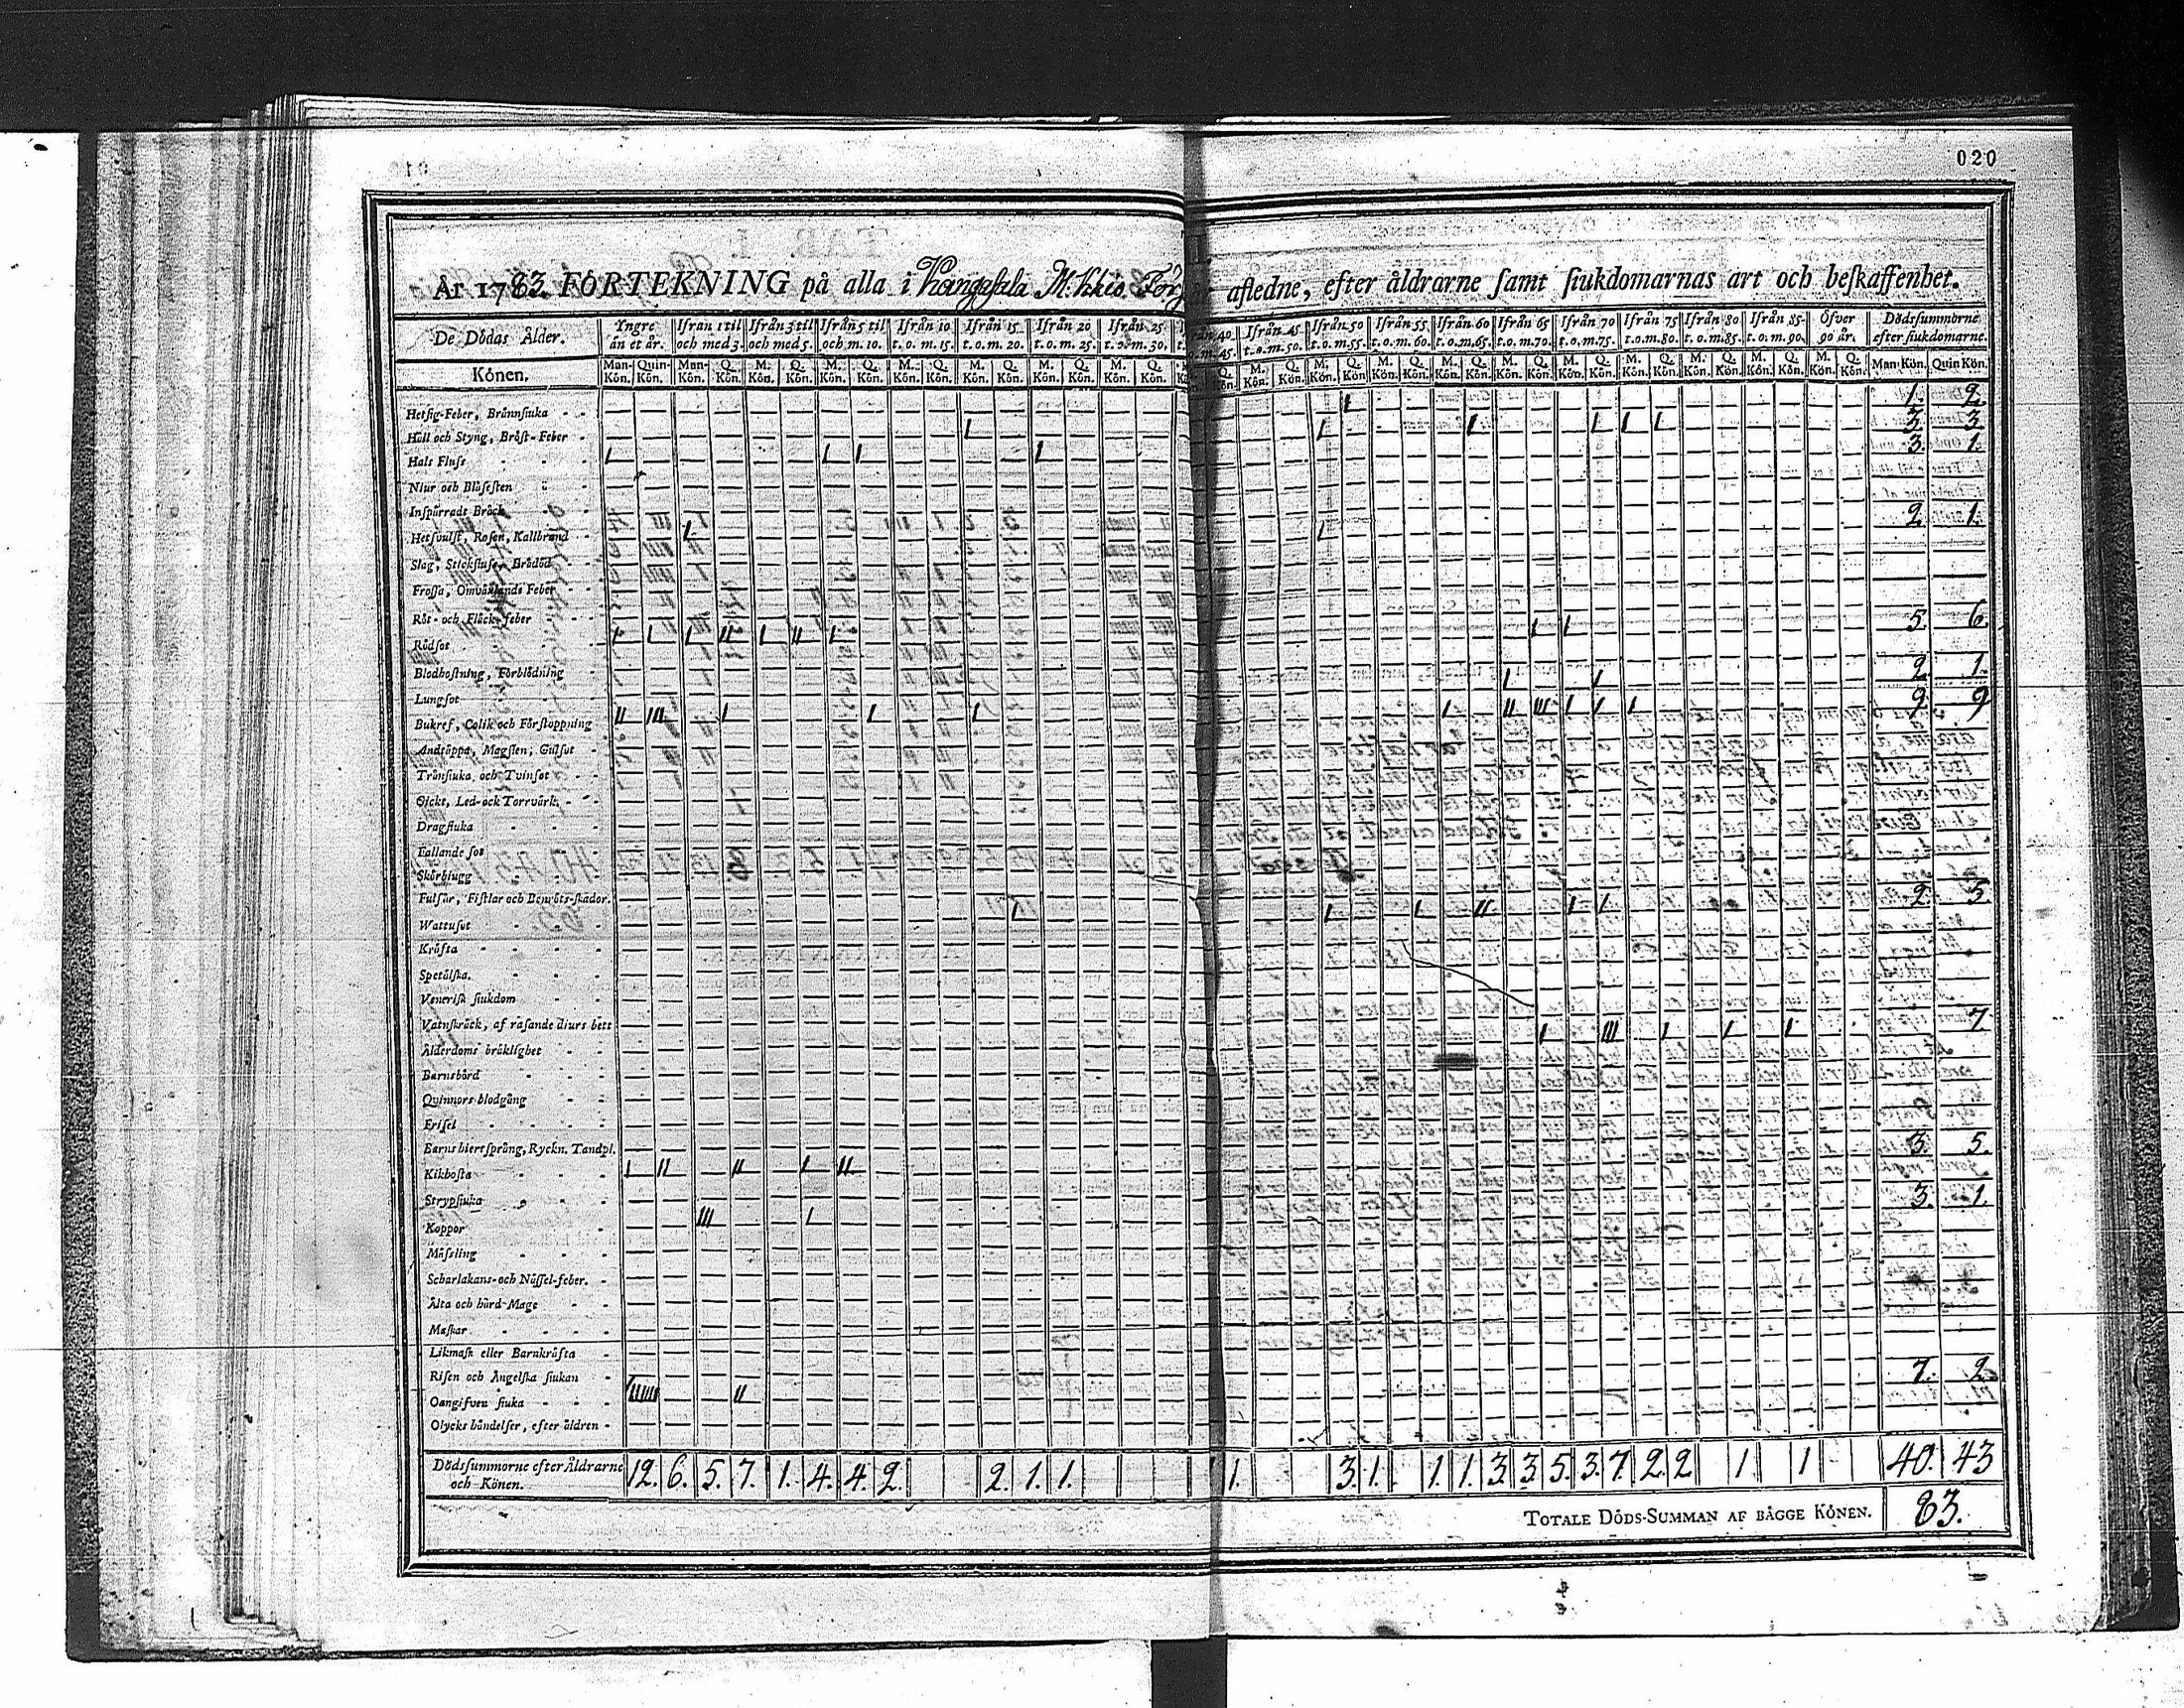 020
År 1783. FÖRTEKNING på alla i Kangasala M. afledne, efter åldrarne samt siukdomarnas art och beskaffenhet.
De Dödas Ålder. Yngre än et år. Ifrån 1 til och med 3. Ifrån 3 til och med 5. Ifrån 5 til och m. 10. Ifrån 10 t. o. m. 15. Ifrån 15 t. o. m. 20. Ifrån 20 t. o. m. 25. Ifrån 25. t. o. m. 30. 40 o. m. 45. Ifrån 45 t. o. m. 50. Ifrån 50 t. o. m. 55. Ifrån 55. t. o. m. 60. Ifrån 60 t. o. m. 65. Ifrån 65 t. o. m. 70. Ifrån 70 t. o. m. 75. Ifrån 75 t. o. m. 80. Ifrån 80 t. o. m. 85. Ifrån 85- t. o. m. 90. Öfver 90 år. Dödssummorne efter siukdomarne.
Könen. Man-Kön. Quin-Kön. Man-Kön. Q. Kön. M. Kön. Q. Kön. M. Kön. Q. Kön. M. Kön. Q. Kön. M. Kön. Q. Kön. M. Kön. Q. Kön. M. Kön. Q. Kön. Q. Kön. M. Kön. Q. Kön. M. Kön. Q. Kön. M. Kön. Q. Kön. M. Kön. Q. Kön. M. Kön. Q. Kön. M. Kön. Q. Kön. M. Kön. Q. Kön. M. Kön. Q. Kön. M. Kön. Q. Kön. M. Kön. Q. Kön. Man Kön. Quin Kön.
Hetsig-Feber, Brännsiuka - - I 1. 2.
Håll och Styng, Bröst-Feber - I I I I I I 3. 3.
Hals Fluss - - - I I I I 3. 1.
Niur och Blåsesten -
Inspärradt Bråck -
Hetsvulst, Rosen, Kallbrand - I I 2. 1.
Slag, Stickfluss, Brådöd -
Frossa, Omväxlande Feber -
Röt- och Fläck-feber
Rödsot - I I I II I II I I I 5. 6.
Blodhostning, Förblödning -
Lungsot I I 2. 1.
Bukref, Colik och Förstoppning II III I I I I II III I I I 9. 9
Andtäppa, Magsten, Gulsot -
Trånsiuka och Tvinsot - -
Gickt, Led-och Torrvärk. - -
Dragsiuka - - -
Fallande sot
Skörbiugg -
Fulsår, Fistlar och Benröts-skador. 2. 5.
Wattusot - - - I I I II I I
Kräfta - - - -
Spetälska. - - -
Venerisk siukdom - -
Vatnskräck, af rasande diurs bett
Ålderdoms bräklighet - - I III I I I 7.
Barnsbörd - - -
Qvinnors blodgång - -
Erisel - - - -
Barns hiertsprång, Ryckn. Tandpl.
Kikhosta - - - I II II I II 3. 5.
Strypsiuka - -
Koppor - III I 3. 1.
Mässling - - -
Scharlakans-och Nässel-feber. -
Älta och hård Mage - -
Maskar - - - -
Likmask eller Barnkräfta -
Risen och Ångelska siukan -
Oangifven siuka - - - IIIIIII II 7. 2.
Olycks händelser, efter åldren -
Dödssummorne efter Åldrarne och Könen. 12. 6. 5. 7. 1. 4. 4. 2. 2. 1. 1. 1. 3. 1. 1. 1. 3. 3. 5. 3. 7. 2. 2 1. 1 40. 43
TOTALE DÖDS-SUMMAN AF BÄGGE KÖNEN. 83.